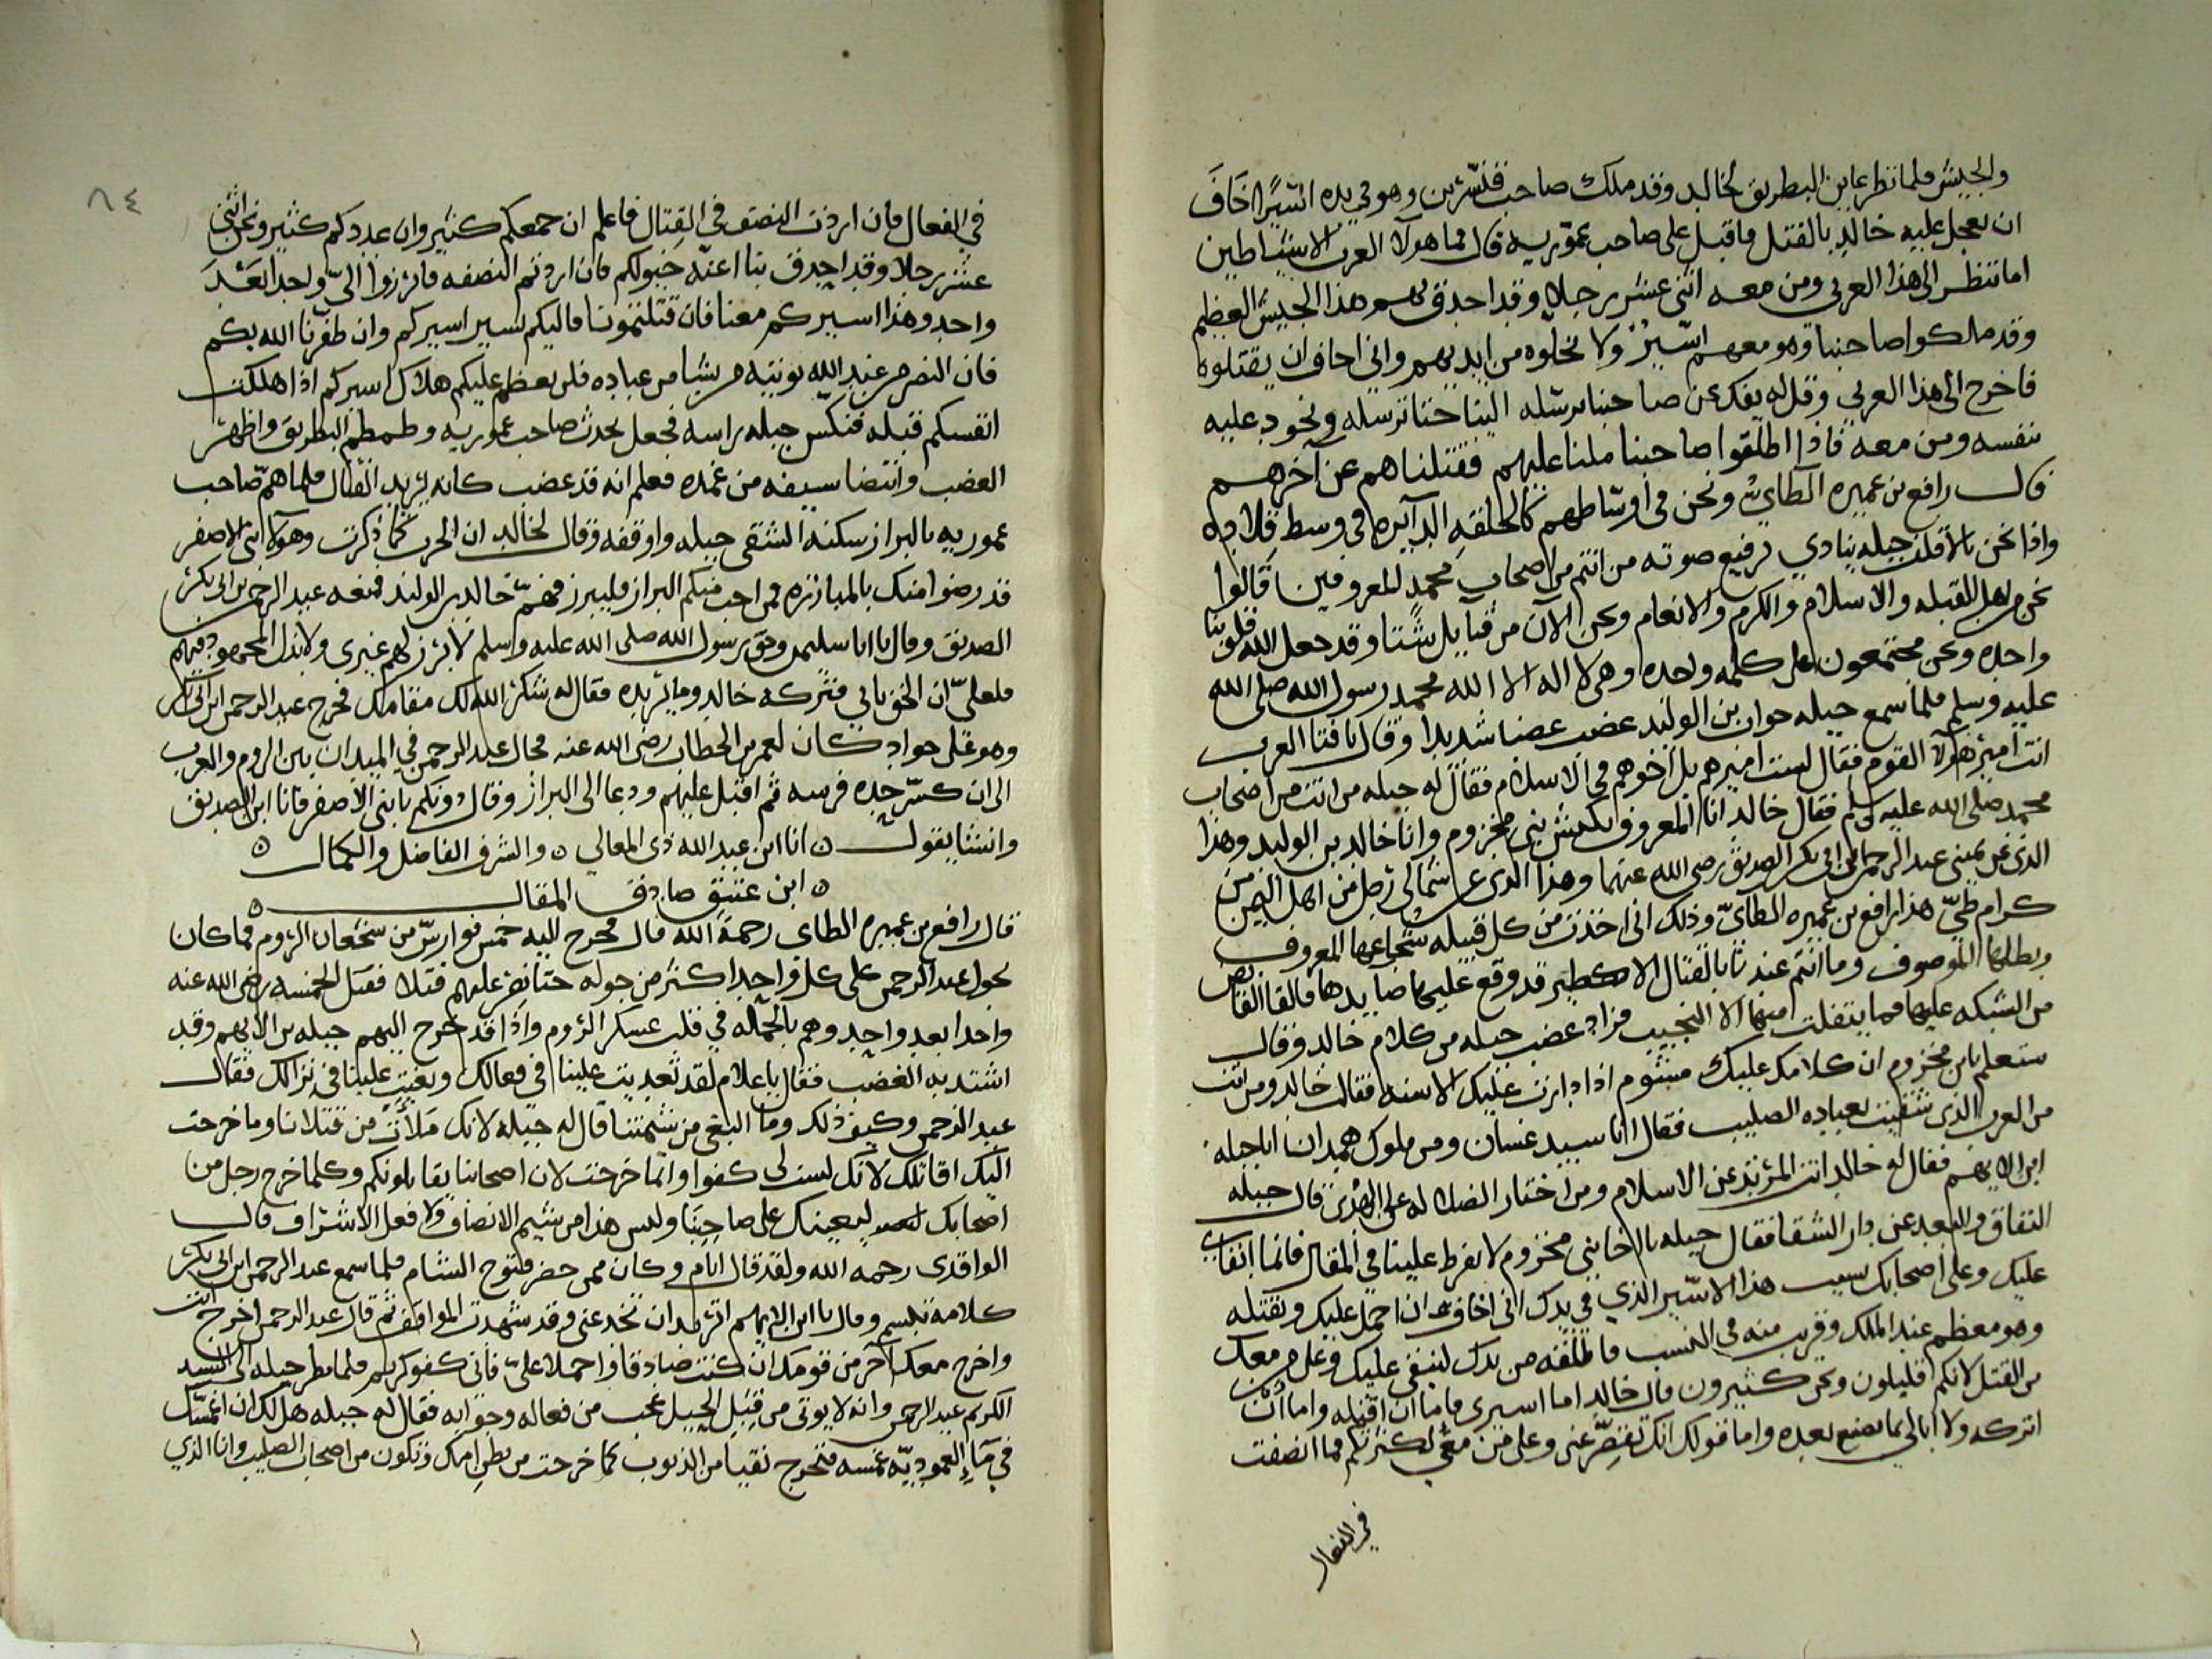 والجيش فلما نظر عاين البطريق لخالد وقد ملك صاحب قنسرين وهو في يده اسيرا خاف
ان يعجل عليه خالد بالقتل فاقبل على صاحب عموريه قال فما هولا العرب الا شياطين
اما تنظر الى هذا العربي ومن معه اثنى عشر رجلا وقد احدق بهم هذا الجيش العظيم
وقد ملكوا صاحبنا وهو معهم اسير ولا يخلوه من ايديهم واني اخاف ان يقتلوه
فاخرج الى هذا العربي وقل له يفك عن صاحبنا يرسله الينا حتنا نرسله ونجود عليه
بنفسه ومن معه فاذا اطلقوا صاحبنا ملنا عليهم فقتلناهم عن آخرهم
قال رافع بن عميره الطاي ونحن في اوساطهم كالحلقه الدايره في وسط فلاه
واذا نحن بالافلف جبله ينادي برفيع صوته من انتم من اصحاب محمد المعروفين قالوا
نحن اهل القبله والاسلام والكرم والانعام ونحن الآن من قبايل شتا وقد جعل الله قلوبنا
واحده ونحن مجتمعون على كلمه واحده وهى لا اله الا الله محمد رسول الله صلى الله
عليه وسلم فلما سمع جبله جواب بن الوليد غضب غضبا شديدا وقال يا فتا العرب
انت امير هولا القوم فقال لست اميرهم بل اخوهم في الاسلام فقال له جبله من انت من اصحاب
محمد صلى الله عليه وسلم فقال خالد انا المعروف بكبش بنى مخزوم وانا خالد بن الوليد وهذا
الذى عن يمينى عبد الرحمن بن ابى بكر الصديق رضى الله عنهما وهذا الذى عن شمالى رجل من اهل اليمن من
كرام طي هذا رافع بن عميره الطاى وذلك انى اخذت من كل قبيله شجاعها المعروف
وبطلها الموصوف وما انتم عندنا بالقتال الا كطير قد وقع عليها صايدها فالقا القانص
من الشبكه عليها فما يتفلت منها الا النجيب فزاد غضب جبله من كلام خالد وقال
ستعلم يابن مخزوم ان كلامك عليك مشوم اذا دارت عليك الاسنه فقال خالد ومن انت
من العرب الذى شقيت بعباده الصليب فقال انا سيد غسان ومن ملوك همدان انا جبله
ابن الايهم فقال له خالد انت المرتد عن الاسلام ومن اختار الضلاله على الهدى قال جبله
عليك وعلى اصحابك بسبب هذا الاسير الذي في يدك انى اخاف ان احمل عليك وتقتله
وهو معظم عند الملك وقريب منه في النسب فاطلقه من يدك لنبقى عليك وعلى من معك
من القتل لانكم اقليلون ونحن كثيرون قال خالد اما اسيرى فاما ان اقتله واما ان
اتركه ولا ابالي بما يصنع بعده واما قولك انك تقصر عنى وعلى من معى لكثرتكم فما انصفت
في الفعال
٨٤
في الفعال فان اردت النصف في القتال فاعلم ان جمعكم كثير وان عددكم كثير ونحن اثنى
عشر رجلا وقد احدق بنا اعنه خيولكم فان اردتم النصفه فابرزوا الىّ واحدا بعد
واحد وهذا اسيركم معنا فان قتلتمونا فاليكم يسير اسيركم وان ظفرنا الله بكم
فان النصر من عند الله يوتيه من يشا من عباده فلن يعظم عليكم هلاك اسيركم اذا هلكت
انفسكم قبله فنكس جبله براسه فجعل يحدث صاحب عموريه وطمطم البطريق واظهر
الغضب وانتضا سيفه من غمده فعلم انه قد غضب كانه يريد القتال فلما هم صاحب
عموريه بالبراز سكنه الشقى جبله واوقفه وقال لخالد ان الحرب كما ذكرت وهولا بنى الاصفر
قد رضوا منك بالمبارزه فمن احب منكم البراز فليبرز فهم خالد بن الوليد فمنعه عبد الرحمن بن ابى بكر
الصديق وقال يا ابا سليمن وحق رسول الله صلى الله عليه وسلم لا يبرز لهم غيرى ولابذل المجهود فيهم
فلعلى ان الحق بابي فتركه خالد وما يريده فقال له شكر الله لك مقامك فخرج عبد الرحمن ابن ابى بكر
وهو على جواد كان لعمر بن الخطاب رضى الله عنه فجال عبد الرحمن في الميدان بين الروم والعرب
الى ان كسر حده فرسه ثم اقبل عليهم ودعا الى البراز وقال دونكم يا بنى الاصفر فانا ابن الصديق
وانشا يقول ه انا ابن عبد الله ذى المعالي ه والشرف الفاضل والكمال ه
ه ابن عتيق صادق المقال ه
قال رافع بن عميره الطاى رحمة الله قال فخرج اليه خمس فوارس من شجعان الروم فما كان
يجول عبد الرحمن على كل واحد اكثر من جوله حتا نصر عليهم قتلا فقتل الخمسه رضى الله عنه
واحدا بعد واحد وهم بالحمله في قلب عسكر الروم واذا قد خرج اليهم جبله بن الايهم وقد
اشتد به الغضب فقال يا غلام لقد تعديت علينا في فعالك وبغيت علينا في نزالك فقال
عبد الرحمن وكيف ذلك وما البغى من شيمتنا قال له جبله لانك ملات من قتلانا وما خرجت
اليك اقاتلك لانك لست لى كفوا وانما خرجت لان اصحابنا يقابلونكم وكلما خرج رجل من
اصحابك ليعينك على صاحبنا وليس هذا من شيم الانصاف ولا فعل الاشراف قال
الواقدى رحمه الله ولقد قال ايام وكان ممن حضر فتوح الشام فلما سمع عبد الرحمن ابن ابى بكر
كلامه تبسم وقال يا ابن الايهم اتريد ان تخدعنى وقد شهدت المواقف ثم قال عبد الرحمن اخرج انت
واخرج معك آخر من قومك ان كنت صادقا واحملا على فانى كفو كريم فلما نظر جبله الى السيد
الكريم عبد الرحمن وانه لا يوتى من قبل الحيل عجب من فعاله وجوابه فقال له جبله هل لك ان اغمسك
في ماء العموديه غمسه فتخرج نقيا من الذنوب كما خرجت من بطن امك وتكون من اصحاب الصليب وانا الذي